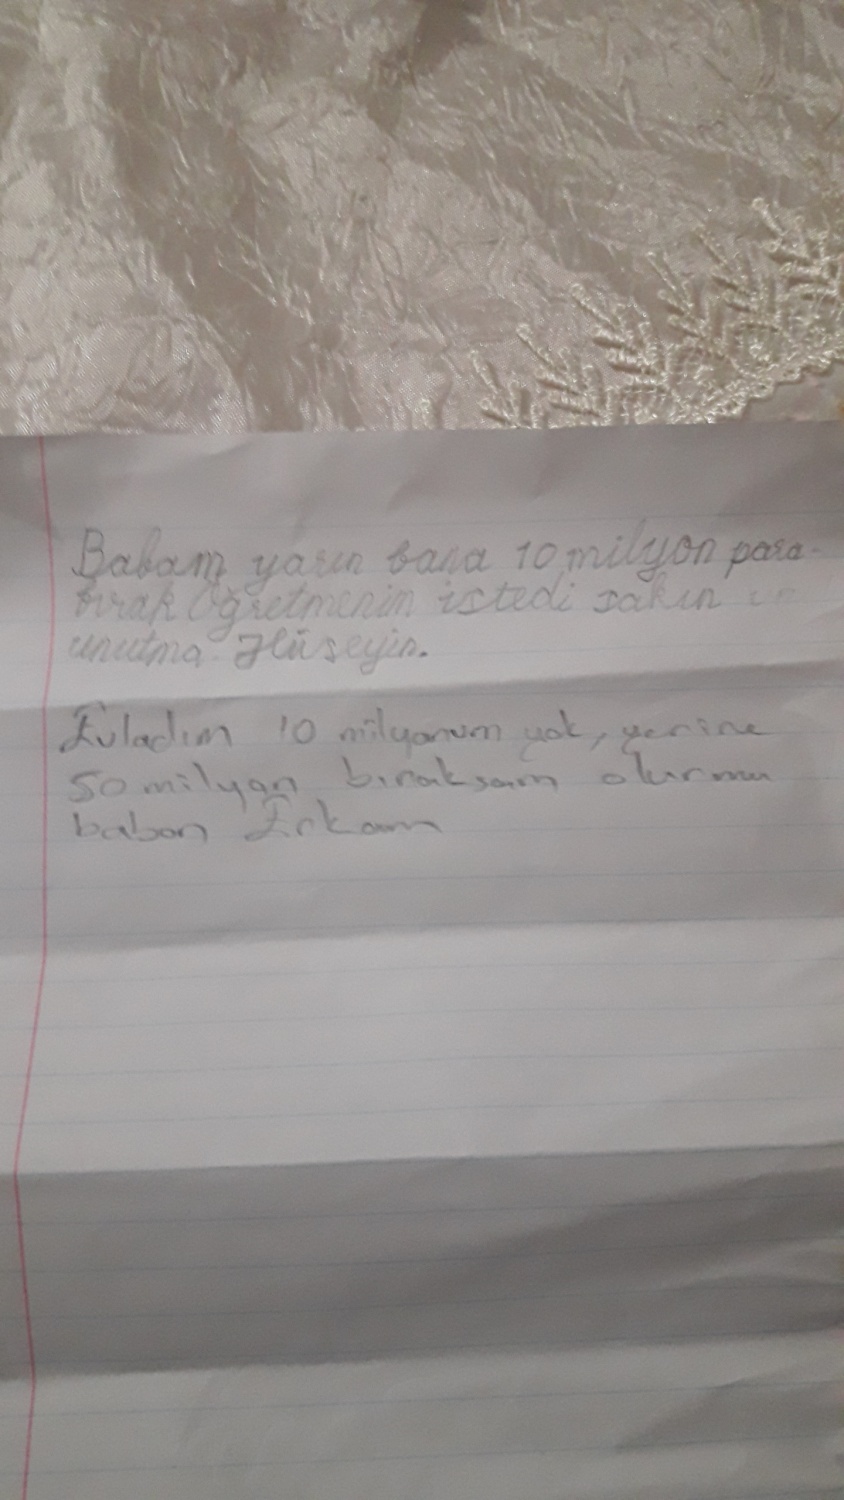 Babam yarın bana 10 milyon para
bırak Öğretmenin istedi sakın un
unutma. Hüseyin.
Evladım 10 milyonum yok, yerine
50 milyon bıraksam olurmu
baban Erkam